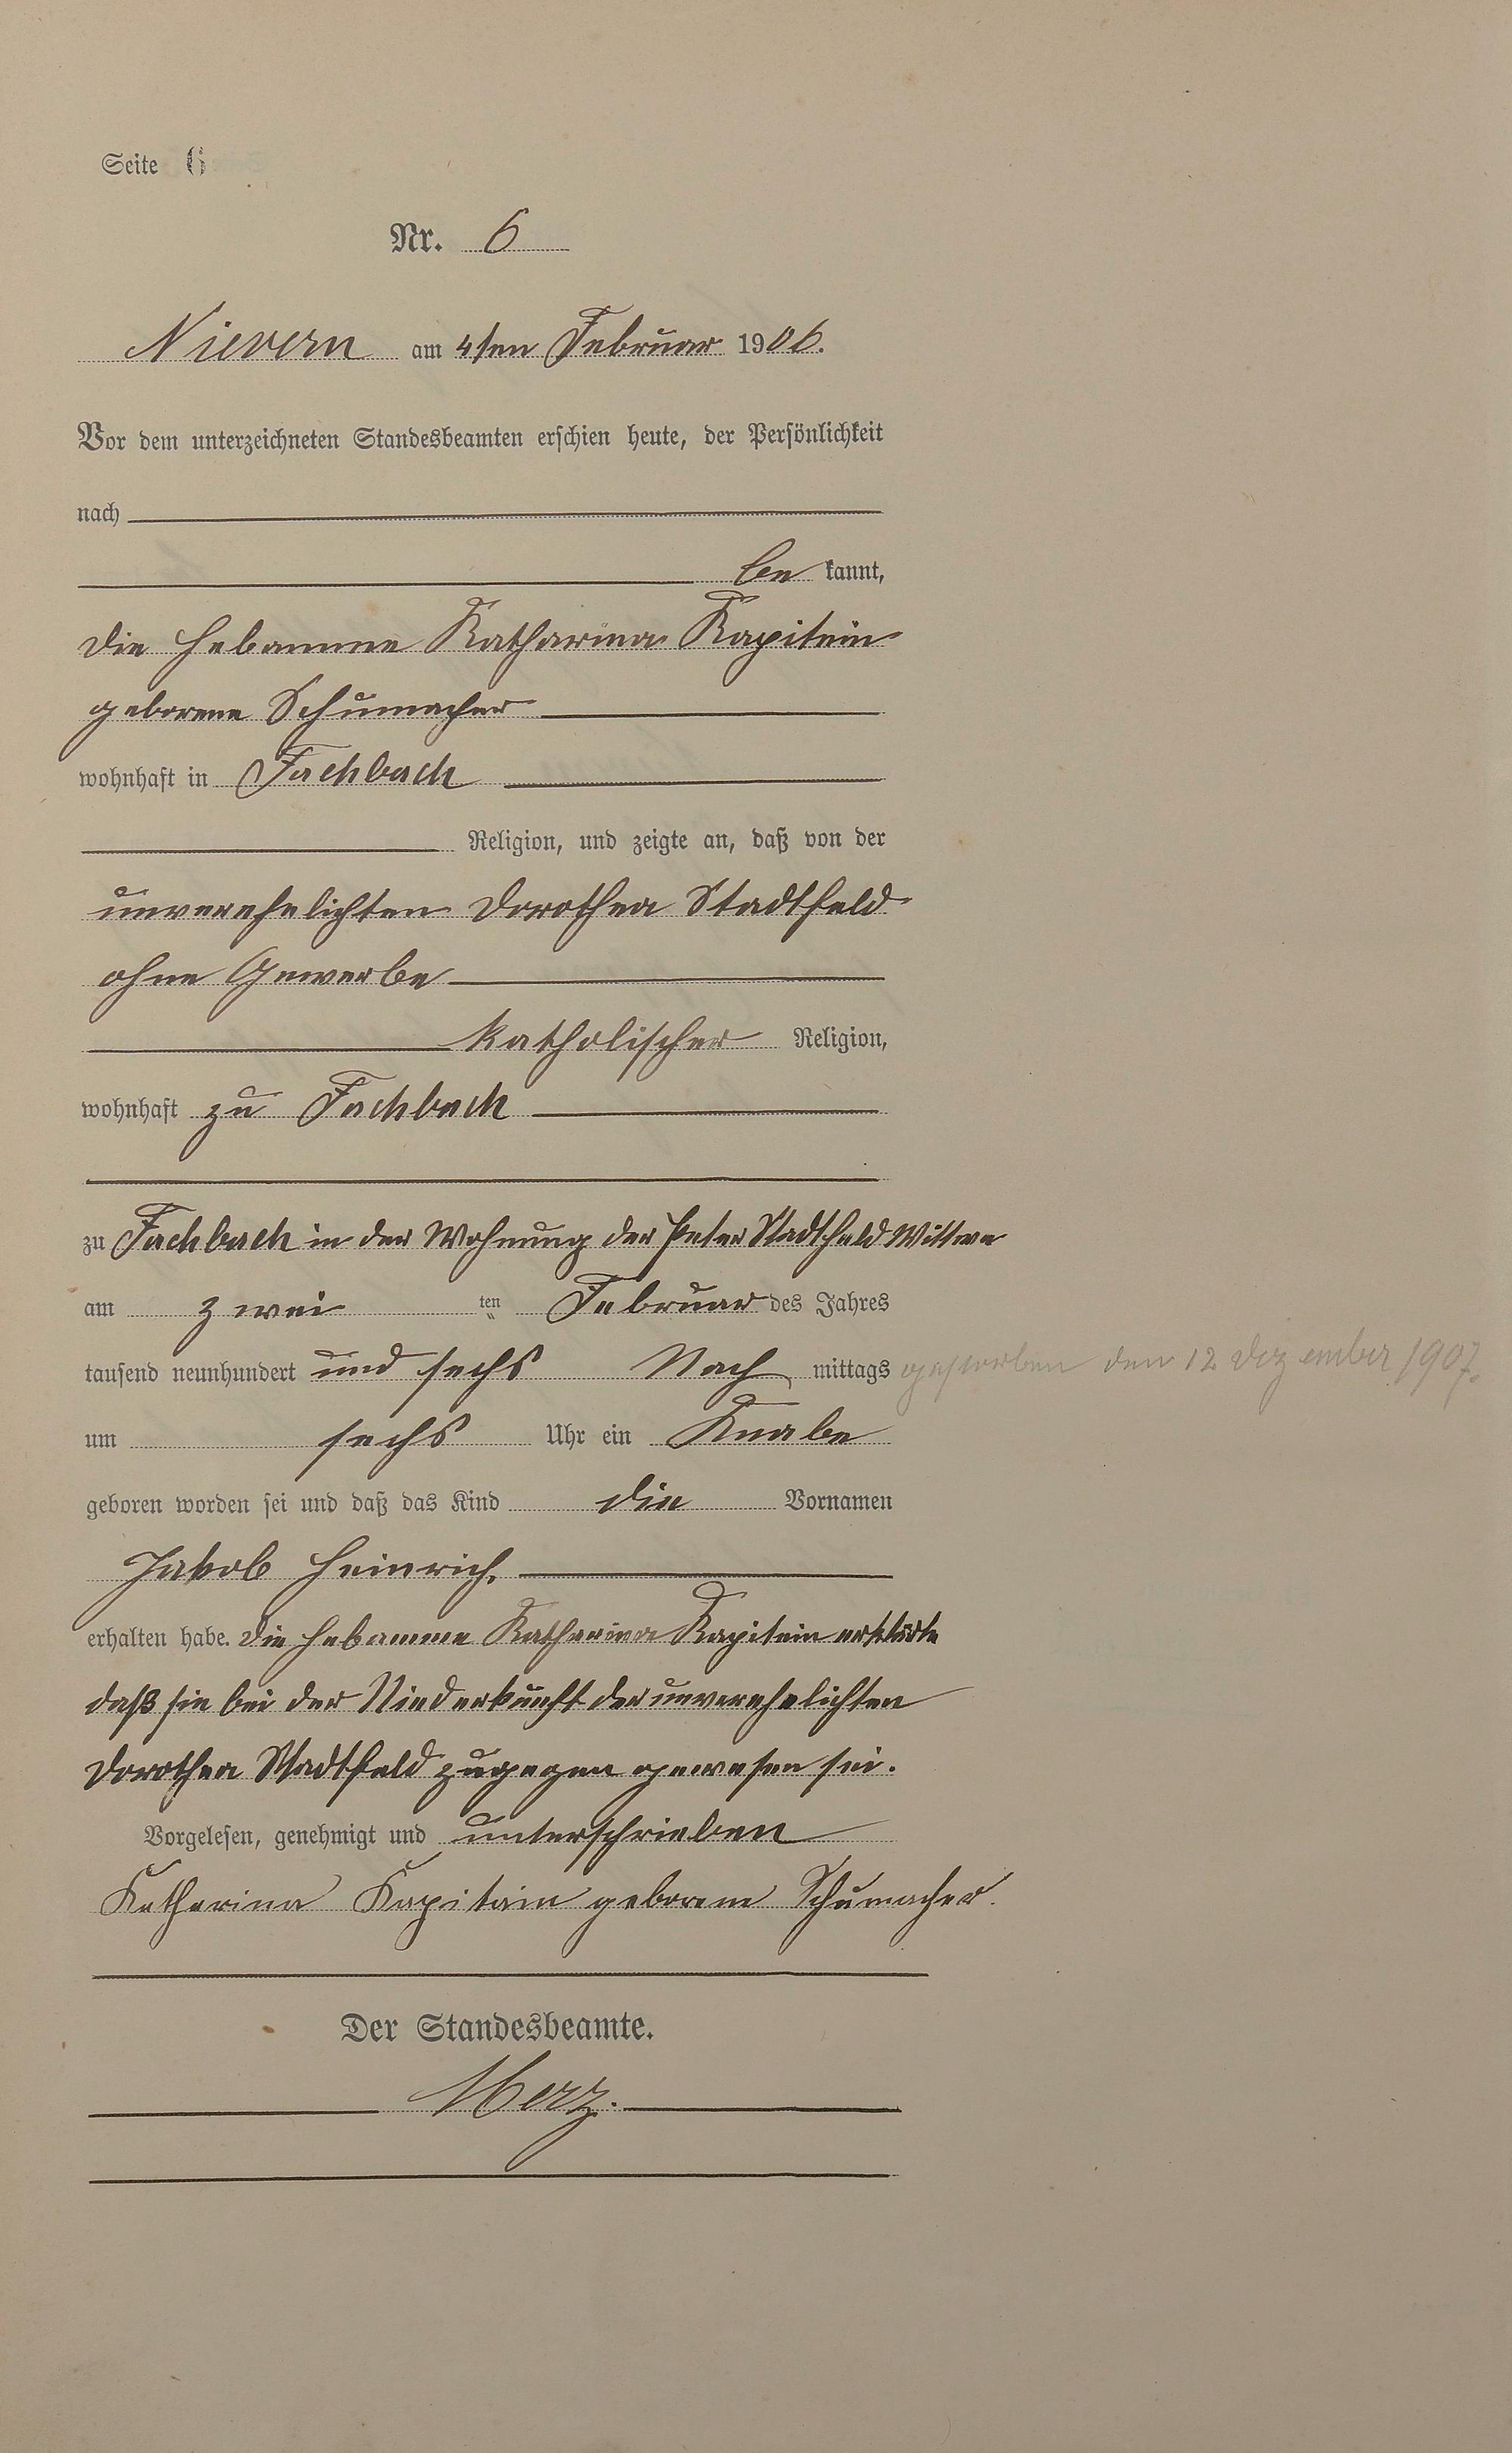 Seite 6
Nr. 6
Nievern am 4ten Februar 1906.
Vor dem unterzeichneten Standesbeamten erschien heute, der Persönlichkeit
nach
be kannt,
die Hebamme Katharina Kapitein
geborene Schumacher
wohnhaft in Fachbach
Religion, und zeigte an, daß von der
unverehelichten Dorothea Stadtfeld
ohne Gewerbe
katholischer Religion,
wohnhaft zu Fachbach
zu Fachbach in der Wohnung der Peter Stadtfeld Wittwe
am zwei ten Februar des Jahres
tausend neunhundert und sechs Nach mittags gestorben den 12 Dezember 1907.
um sechs Uhr ein Knabe
geboren worden sei und daß das Kind die Vornamen
Jakob Heinrich.
erhalten habe. Die Hebamme Katharina Kapitein erklärte
daß sie bei der Niederkunft der unverehelichten
Dorothea Stadtfeld zugegen gewesen sei.
Vorgelesen, genehmigt und unterschrieben
Katharina Kapitain geborene Schumacher.
Der Standesbeamte.
Merz.